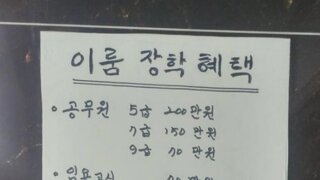 이룸 장학 혜택
• 공무원 5급 200만원
7급 150만원
9급 70만원